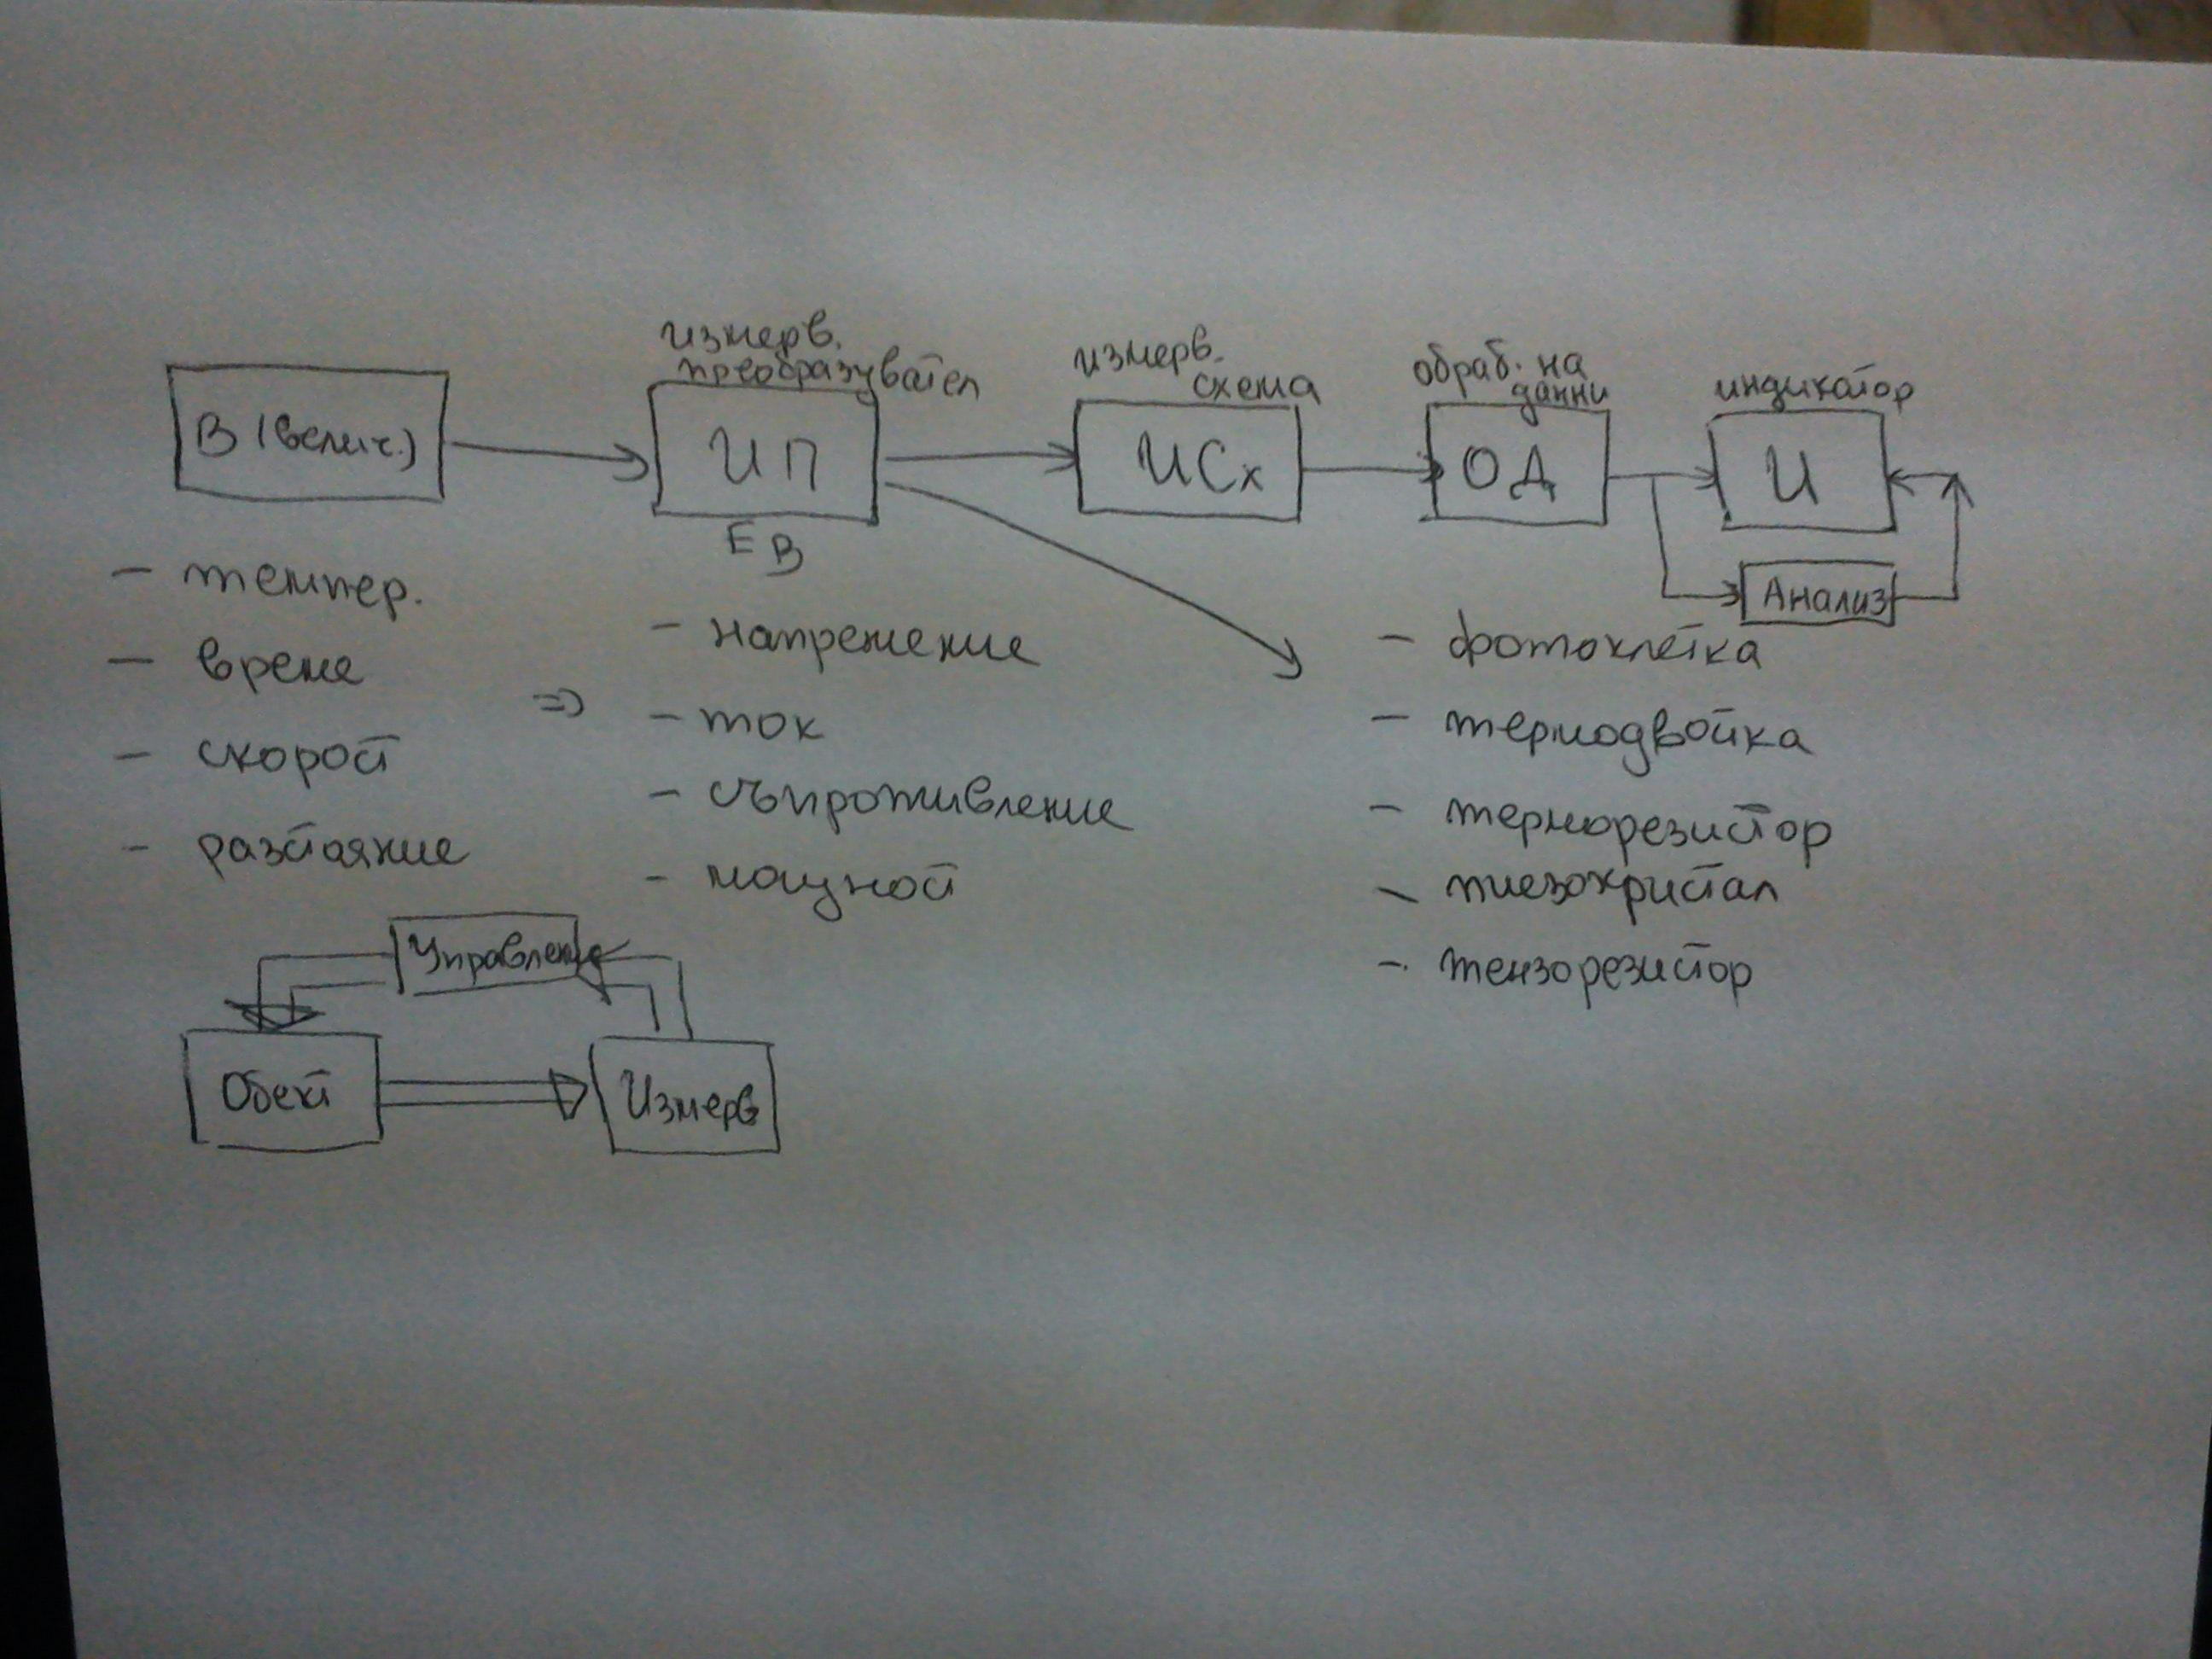 измерв.
преобразувател
измерв.
схема
обраб. на
данни
индикатор
В (велич.)
ИП
ИСх
ОД
И
ЕВ
Анализ
- темпер.
- време
- скорост
- разстояние
=>
- напрежение
- ток
- съпротивление
- мощност
- фотоклетка
- термодвойка
- терморезистор
- пиезокристал
- тензорезистор
Управление
Обект
Измерв